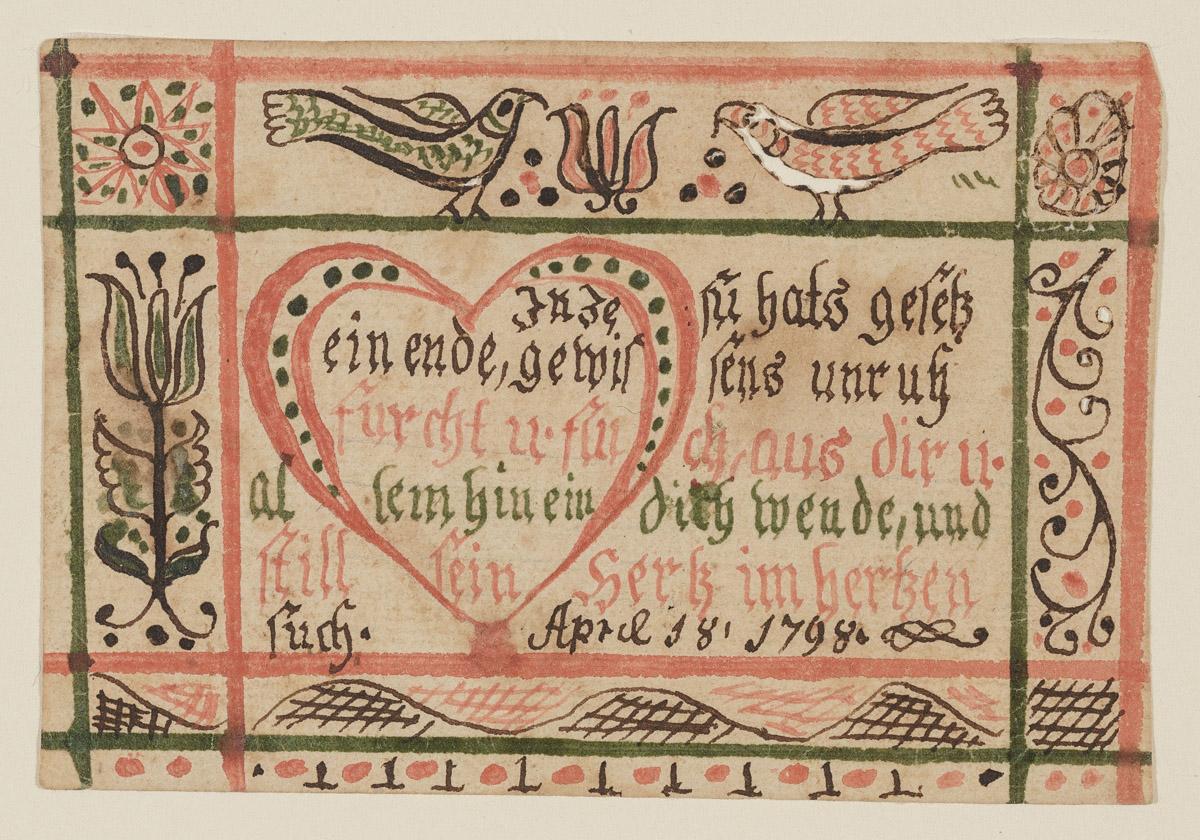 In Je sū hats gesetz
ein ende, gewis sens unruh
furcht u. flu ch, aus dir u.
al lem hin ein dich wende, und
still sein Hertz im hertzen
such. Aprel 18. 1798.